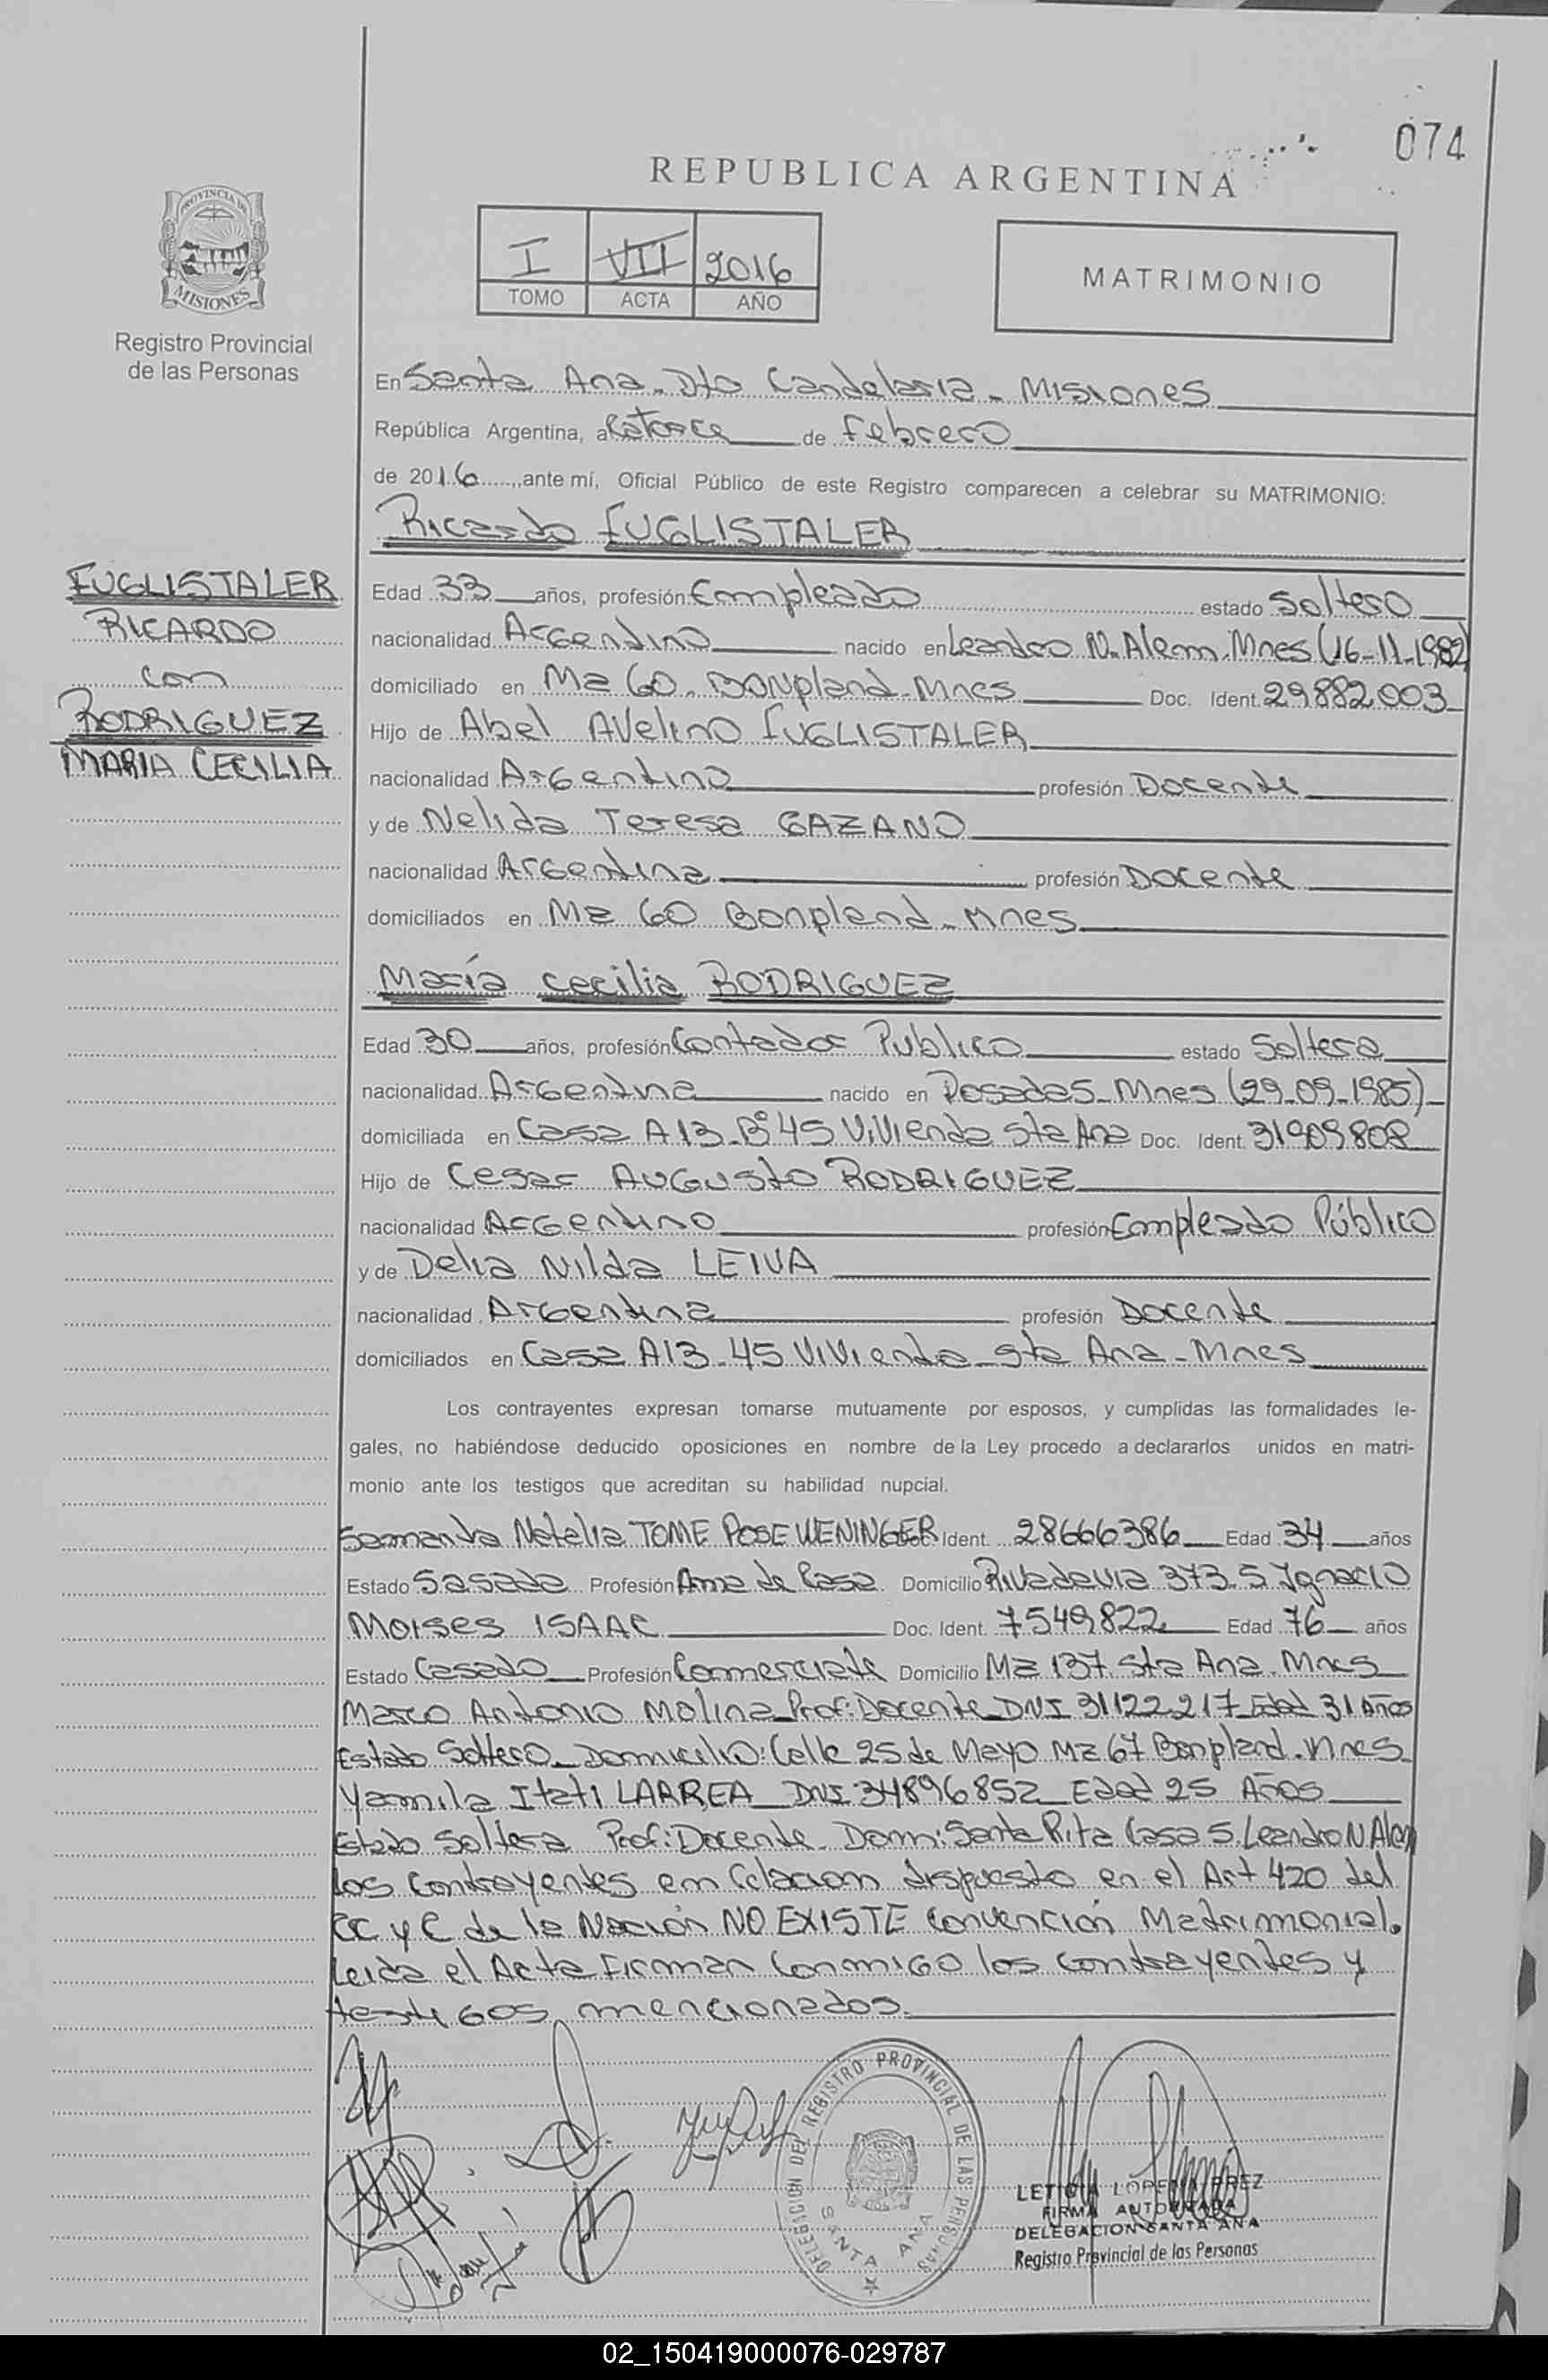 074
REPUBLICA ARGENTINA
PROVINCIA DE
MISIONES
Registro Provincial
de las Personas
I VII 2016
TOMO ACTA AÑO
MATRIMONIO
En Santa Ana - Dto Candelaria - Misiones
República Argentina, a Catorce de febrero
de 2016 ante mí, Oficial Público de este Registro comparecen a celebrar su MATRIMONIO:
Ricardo FUGLISTALER
FUGLISTALER
RICARDO
con
RODRIGUEZ
MARIA CECILIA
Edad 33 años, profesión Empleado estado Soltero
nacionalidad Argentino nacido en Leandro N. Alem. Mnes (16-11-1982)
domiciliado en Mz 60. Bonpland - Mnes Doc. Ident. 29.882.003
Hijo de Abel Avelino FUGLISTALER
nacionalidad Argentino profesión Docente
y de Nelida Teresa GAZANO
nacionalidad Argentina profesión Docente
domiciliados en Mz 60 Bonpland - Mnes
María Cecilia RODRIGUEZ
Edad 30 años, profesión Contador Publico estado Soltera
nacionalidad Argentina nacido en Posadas - Mnes (29-09-1985)
domiciliada en Casa A13 - Bº 45 Vivienda Sta Ana Doc. Ident. 31909808
Hijo de Cesar Augusto RODRIGUEZ
nacionalidad Argentino profesión Empleado Público
y de Delia Nilda LEIVA
nacionalidad Argentina profesión Docente
domiciliados en Casa A13 - 45 Vivienda - Sta Ana - Mnes
Los contrayentes expresan tomarse mutuamente por esposos, y cumplidas las formalidades le-
gales, no habiéndose deducido oposiciones en nombre de la Ley procedo a declararlos unidos en matri-
monio ante los testigos que acreditan su habilidad nupcial.
Samanta Natalia TOME POSE WENINGER Ident. 28666386 Edad 34 años
Estado Sasada Profesión Ama de Casa Domicilio Rivadavia 373. S Ignacio
Moises ISAAC Doc. Ident. 7549822 Edad 76 años
Estado Casado Profesión Comerciante Domicilio Mz 137. Sta Ana. Mnes
Marco Antonio Molina - Prof: Docente - DNI 31122217 - Edad 31 Años
Estado Soltero - Domicilio: Calle 25 de Mayo Mz 67 Bonpland. Mnes
Yamila Itati LARREA - DNI 34896852 - Edad 25 Años
Estado Soltera Prof: Docente - Domi: Santa Rita Casa 5. Leandro N Alem
Los contrayentes en relacion dispuesto en el Art 420 del
CC y C de la Nación NO EXISTE convención Matrimonial.
Leida el Acta Firman Conmigo los contrayentes y
testigos mencionados.
DELEGACION DEL REGISTRO PROVINCIAL DE LAS PERSONAS
SANTA ANA
LETICIA
FIRMA AUTORIZADA
DELEGACION SANTA ANA
Registro Provincial de las Personas
02_150419000076-029787